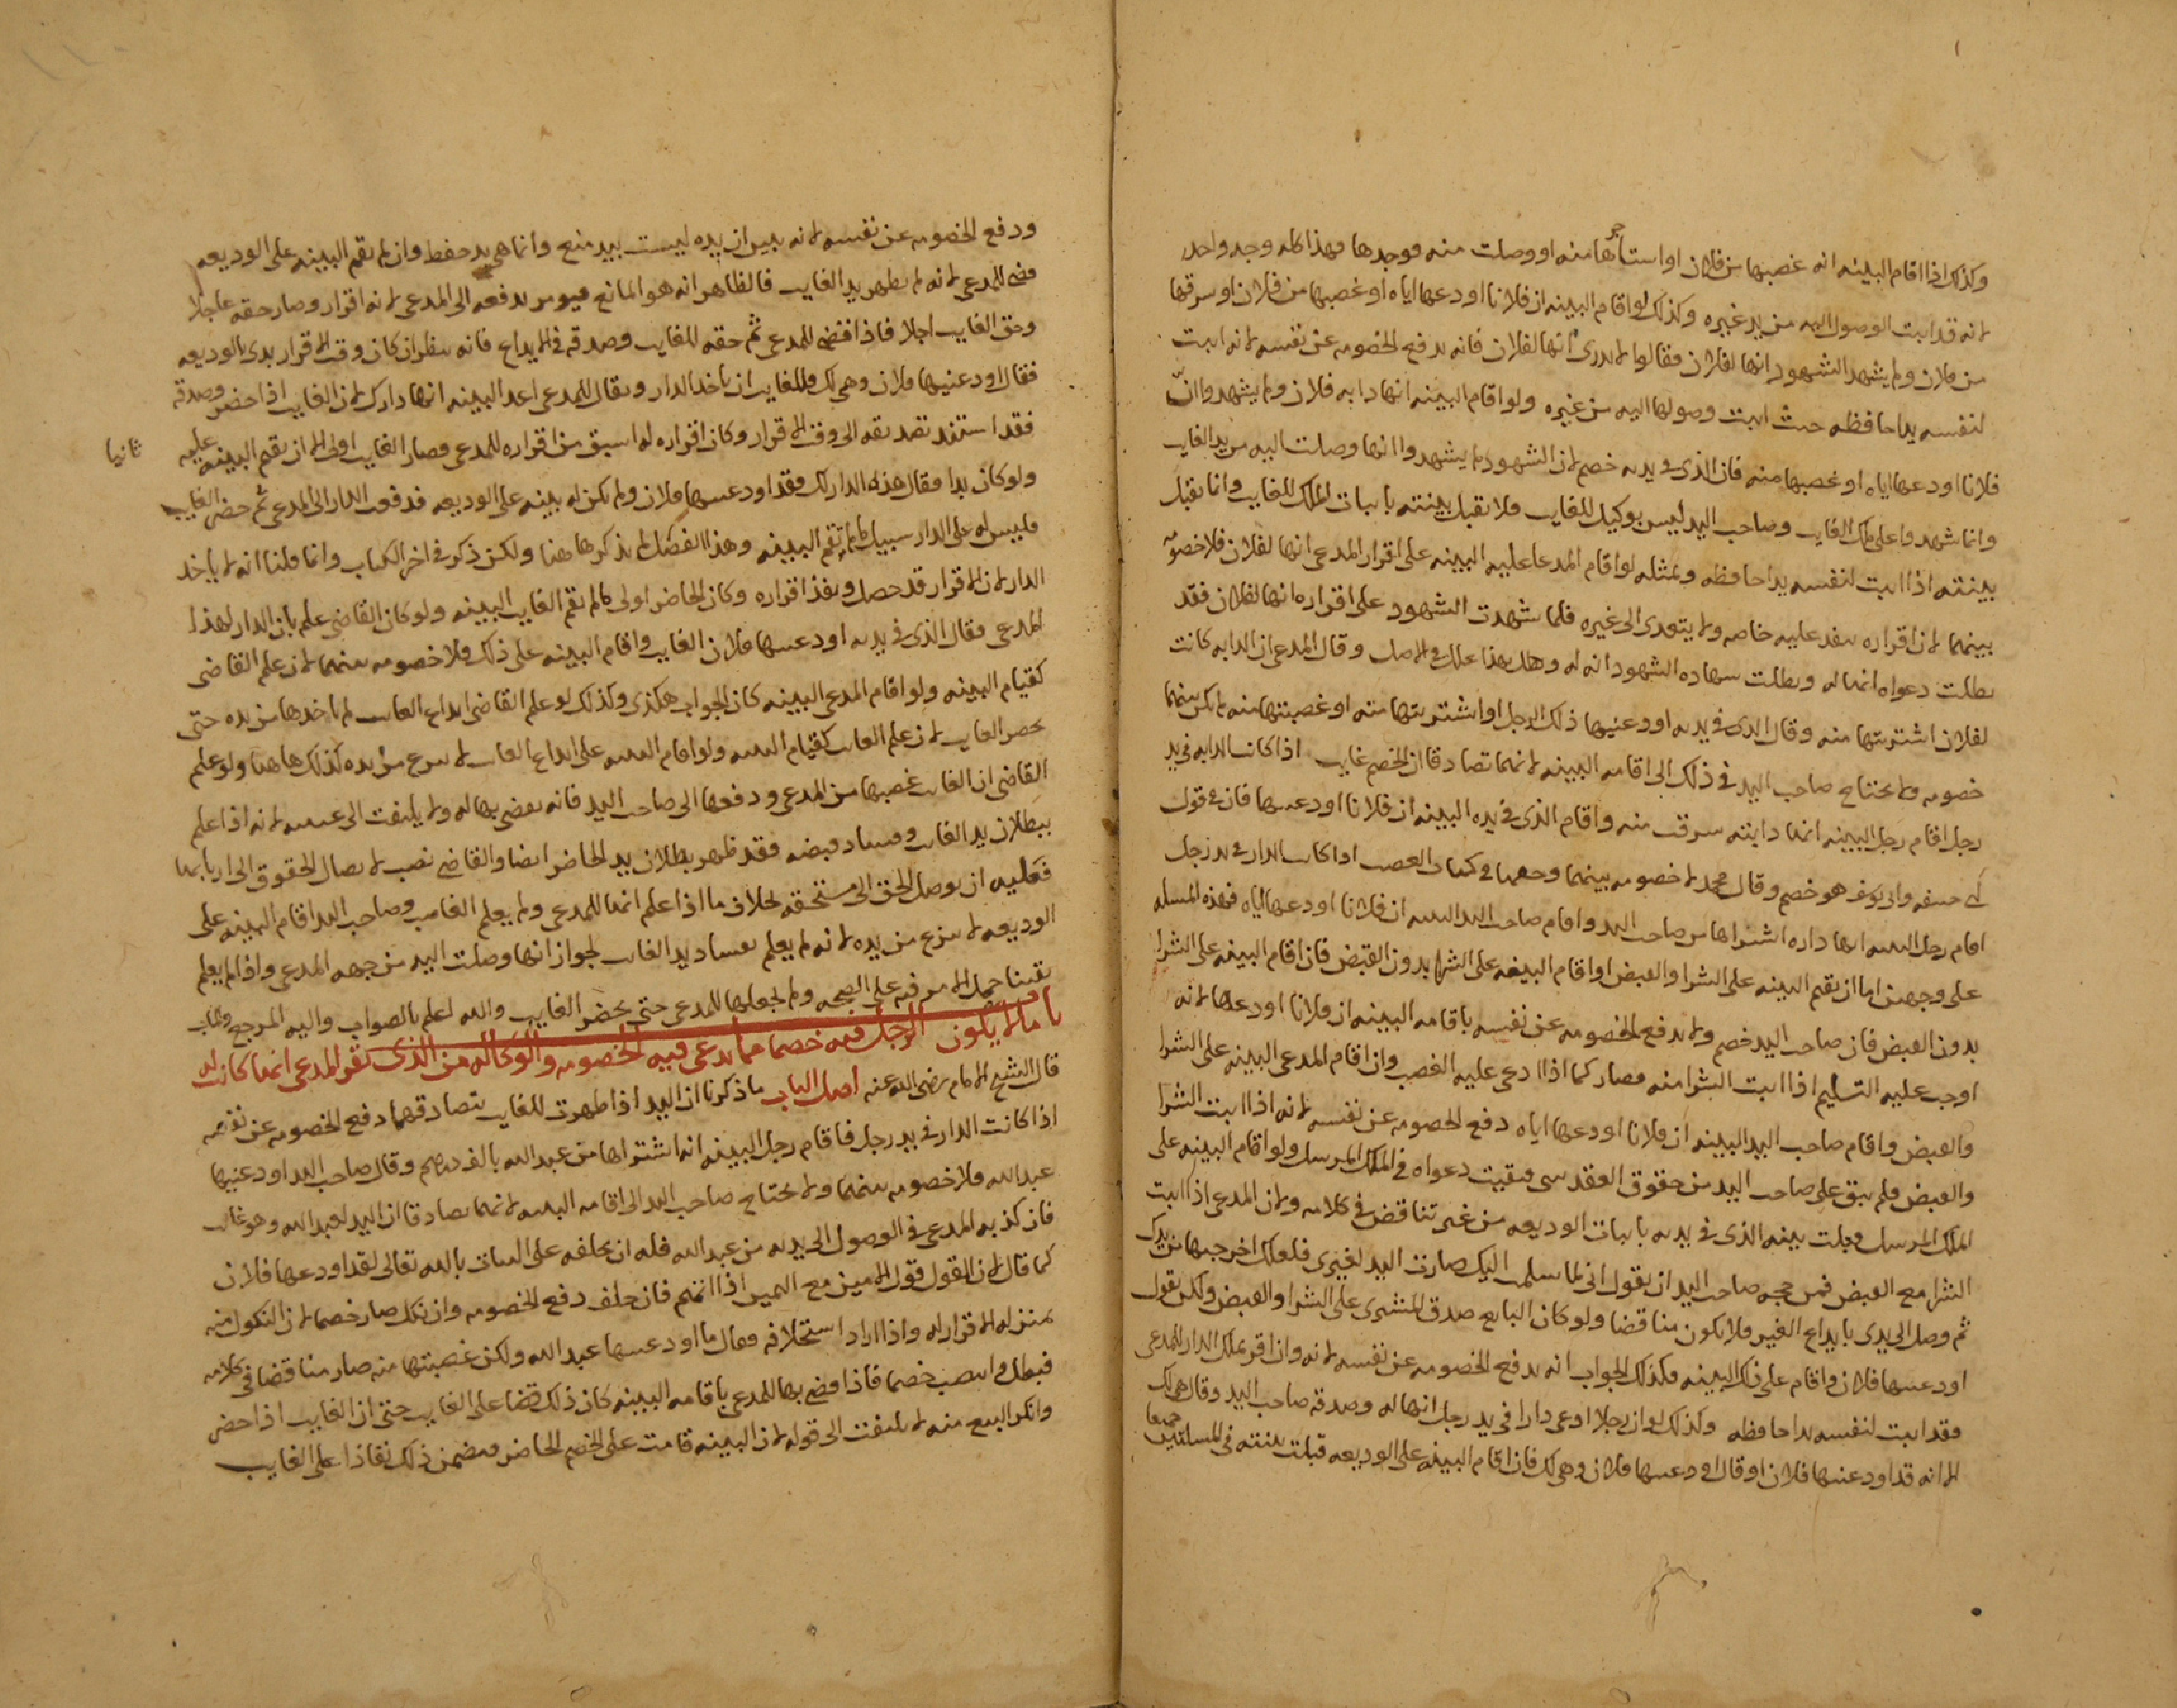 وكذلك اذا اقام البينه انه غصبها من فلان او استاجرها منه او وصلت منه فوجدها فهذا كله وجه واحد
لانه قد اثبت الوصول اليه من يد غيره وكذلك لو اقام البينه ان فلانا اودعها اياه او غصبها من فلان او سرقها
من فلان ولم يشهد الشهود انها لفلان فقالوا لا ندرى انها لفلان فانه يدفع الخصومه عن نفسه لانه اثبت
لنفسه يدا حافظه حيث اثبت وصولها اليه من غيره ولو اقام البينه انها دابه فلان ولم يشهدوا انّ
فلانا اودعها اياه او غصبها منه فان الذى فى يده خصم لان الشهود لم يشهدوا انها وصلت اليه من يد الغايب
وانما شهدوا على ملك الغايب وصاحب اليد ليس بوكيل للغايب فلا تقبل بينته باثبات الملك للغايب وانما تقبل
بينته اذا اثبت لنفسه يدا حافظه وبمثله لو اقام المدعا عليه البينه على اقرار المدعى انها لفلان فلا خصومه
بينهما لان اقراره ينفد عليه خاصه ولا يتعدى الى غيره فلما شهدت الشهود على اقراره انها لفلان فقد
بطلت دعواه انها له وبطلت شهاده الشهود انه له وهل بهذا علل فى الاصل وقال المدعى ان الدابه كانت
لفلان اشتريتها منه وقال الذى فى يده اودعنيها ذلك الرجل او اشتريتها منه او غصبتها منه لم يكن بينهما
خصومه ولا يحتاج صاحب اليد فى ذلك الى اقامه البينه لانهما تصادقا ان الخصم غايب اذا كانت الدابه فى يد
رجل اقام رجل البينه انها دابته سرقت منه واقام الذى فى يده البينه ان فلانا اودعنيها فان فى قول
ابى حنيفه وابى يوسف هو خصم وقال محمد لا خصومه بينهما وحققها فى كتاب الغصب اذا كانت الدار فى يد رجل
اقام رجل البينه انها داره اشتراها من صاحب اليد واقام صاحب اليد البينه ان فلانا اودعها اياه فهذه المسله
على وجهين اما ان يقيم البينه على الشرا والقبض او اقام البينه على الشرا بدون القبض فان اقام البينه على الشرا
بدون القبض فان صاحب اليد خصم ولا يدفع الخصومه عن نفسه باقامه البينه ان فلانا اودعها لانه
اوجب عليه التسليم اذا اثبت الشرا منه فصار كما اذا ادعى عليه الغصب وان اقام المدعى البينه على الشرا
والقبض واقام صاحب اليد البينه ان فلانا اودعها اياه دفع الخصومه عن نفسه لانه اذا اثبت الشرا
والقبض فلم يبق على صاحب اليد من حقوق العقد شى فبقيت دعواه فى الملك المرسل ولو اقام البينه على
الملك المرسل قبلت بينه الذى فى يده باثبات الوديعه من غير تناقض فى كلامه ولان المدعى اذا اثبت
الشرا مع القبض فمن حجه صاحب اليد ان يقول انى لما سلمت اليك صارت اليد لغيرى فلعلك اخرجتها من يدك
ثم وصل الى يدى بايداع الغير فلا يكون مناقضا ولو كان البايع صدق المشترى على الشرا والقبض ولكن يقول
اودعنيها فلان واقام على ذلك البينه فكذلك الجواب انه يدفع الخصومه عن نفسه لانه وان اقر بملك الدار للمدعى
فقد اثبت لنفسه يدا حافظه وكذلك لو ان رجلا ادعى دارا فى يد رجل انها له وصدقه صاحب اليد وقال هى لك
الا انه قد اودعنيها فلان او قال اودعنيها فلان وهى لك فان اقام البينه على الوديعه قبلت بينته فى المسلتين جميعا
ودفع الخصومه عن نفسه لانه يبين ان يده ليست بيد منع وانما هى يد حفظ وان لم يقم البينه على الوديعه
قضى للمدعى لانه لم يظهر يد الغايب فالظاهر انه هو المانع فيومر بدفعه الى المدعى لانه اقرار وصار حقه عاجلا
وحق الغايب اجلا فاذا قضى للمدعى ثم حقه للغايب وصدقه فى الايداع فانه ينظر ان كان وقت الاقرار بدى بالوديعه
فقال اودعنيها فلان وهى لك فللغايب ان ياخد الدار ويقال للمدعى اعد البينه انها دارك لان الغايب اذا حضر وصدقه
فقد استند تصديقه الى وقت الاقرار وكان اقراره له اسبق من اقراره للمدعى فصار الغايب اولى الا ان يقيم البينه عليه ثانيا
ولو كان بدا فقال هذه الدار لك فقد اودعنيها فلان ولم يكن له بينه على الوديعه فدفعت الدار الى المدعى ثم حضر الغايب
فليس له على الدار سبيل ما لم تقم البينه وهذا الفصل لم يذكرها هنا ولكن ذكر فى اخر الكتاب وانما قلنا انه لا ياخد
الدار لان الاقرار قد حصل ونفذ اقراره وكان الحاضر اولى ما لم تقم الغايب البينه ولو كان القاضى علم بان الدار لهذا
المدعى فقال الذى فى يده اودعنيها فلان الغايب واقام البينه على ذلك فلا خصومه بينهما لان علم القاضى
كقيام البينه ولو اقام المدعى البينه كان الجواب هكذى وكذلك لو علم القاضى ايداع الغايب لم ياخدها من يده حتى
يحضر الغايب لان علم الغايب كقيام البينه ولو اقام البينه على ايداع الغايب لا ينزع من يده كذلك هاهنا ولو علم
القاضى ان الغايب غصبها من المدعى ودفعها الى صاحب اليد فانه يقضى بها له ولا يلتفت الى غيبته لانه اذا علم
ببطلان يد الغايب وفساد قبضه فقد ظهر بطلان يد الحاضر ايضا والقاضى نصب لايصال الحقوق الى اربابها
فعليه ان يوصل الحق الى مستحقه بخلاف ما اذا علم انها للمدعى ولم يعلم الغاصب وصاحب اليد اقام البينه على
الوديعه لا ينزع من يده لانه لم يعلم بفساد يد الغايب لجواز انها وصلت اليه من جهه المدعى واذا لم يعلم
يقينا حمل الامر فيه على الصحه ولم يجعلها للمدعى حتى يحضر الغايب والله اعلم بالصواب واليه المرجع والماب
باب ما لا يكون الرجل فيه خصما مما يدعى فيه الخصومه والوكاله من الذى يقر المدعى انها كانت له
قال الشيخ الامام رضى الله عنه اصل الباب ما ذكرنا ان اليد اذا ظهرت للغايب بتصادقهما دفع الخصومه عن نفسه
اذا كانت الدار فى يد رجل فاقام رجل البينه انه اشتراها من عبد الله بالف درهم وقال صاحب اليد اودعنيها
عبد الله فلا خصومه بينهما ولا يحتاج صاحب اليد الى اقامه البينه لانهما تصادقا ان اليد لعبد الله وهو غايب
فان كذبه المدعى فى الوصول الى يده من عبد الله فله ان يحلفه على البتات بالله تعالى لقد اودعها فلان
كما قال لان القول قول الامين مع اليمين اذا اتهم فان حلف دفع الخصومه وان نكل صار خصما لان النكول منه
بمنزله الاقرار له واذا اراد استحلافه فقال ما اودعنيها عبد الله ولكن غصبتها منه صار مناقضا فى كلامه
فبطل وانتصب خصما فاذا قضى بها للمدعى باقامه البينه كان ذلك قضا على الغايب حتى ان الغايب اذا حضر
وانكر البيع منه لا يلتفت الى قوله لان البينه قامت على الخصم الحاضر فيضمن ذلك نفاذا على الغايب